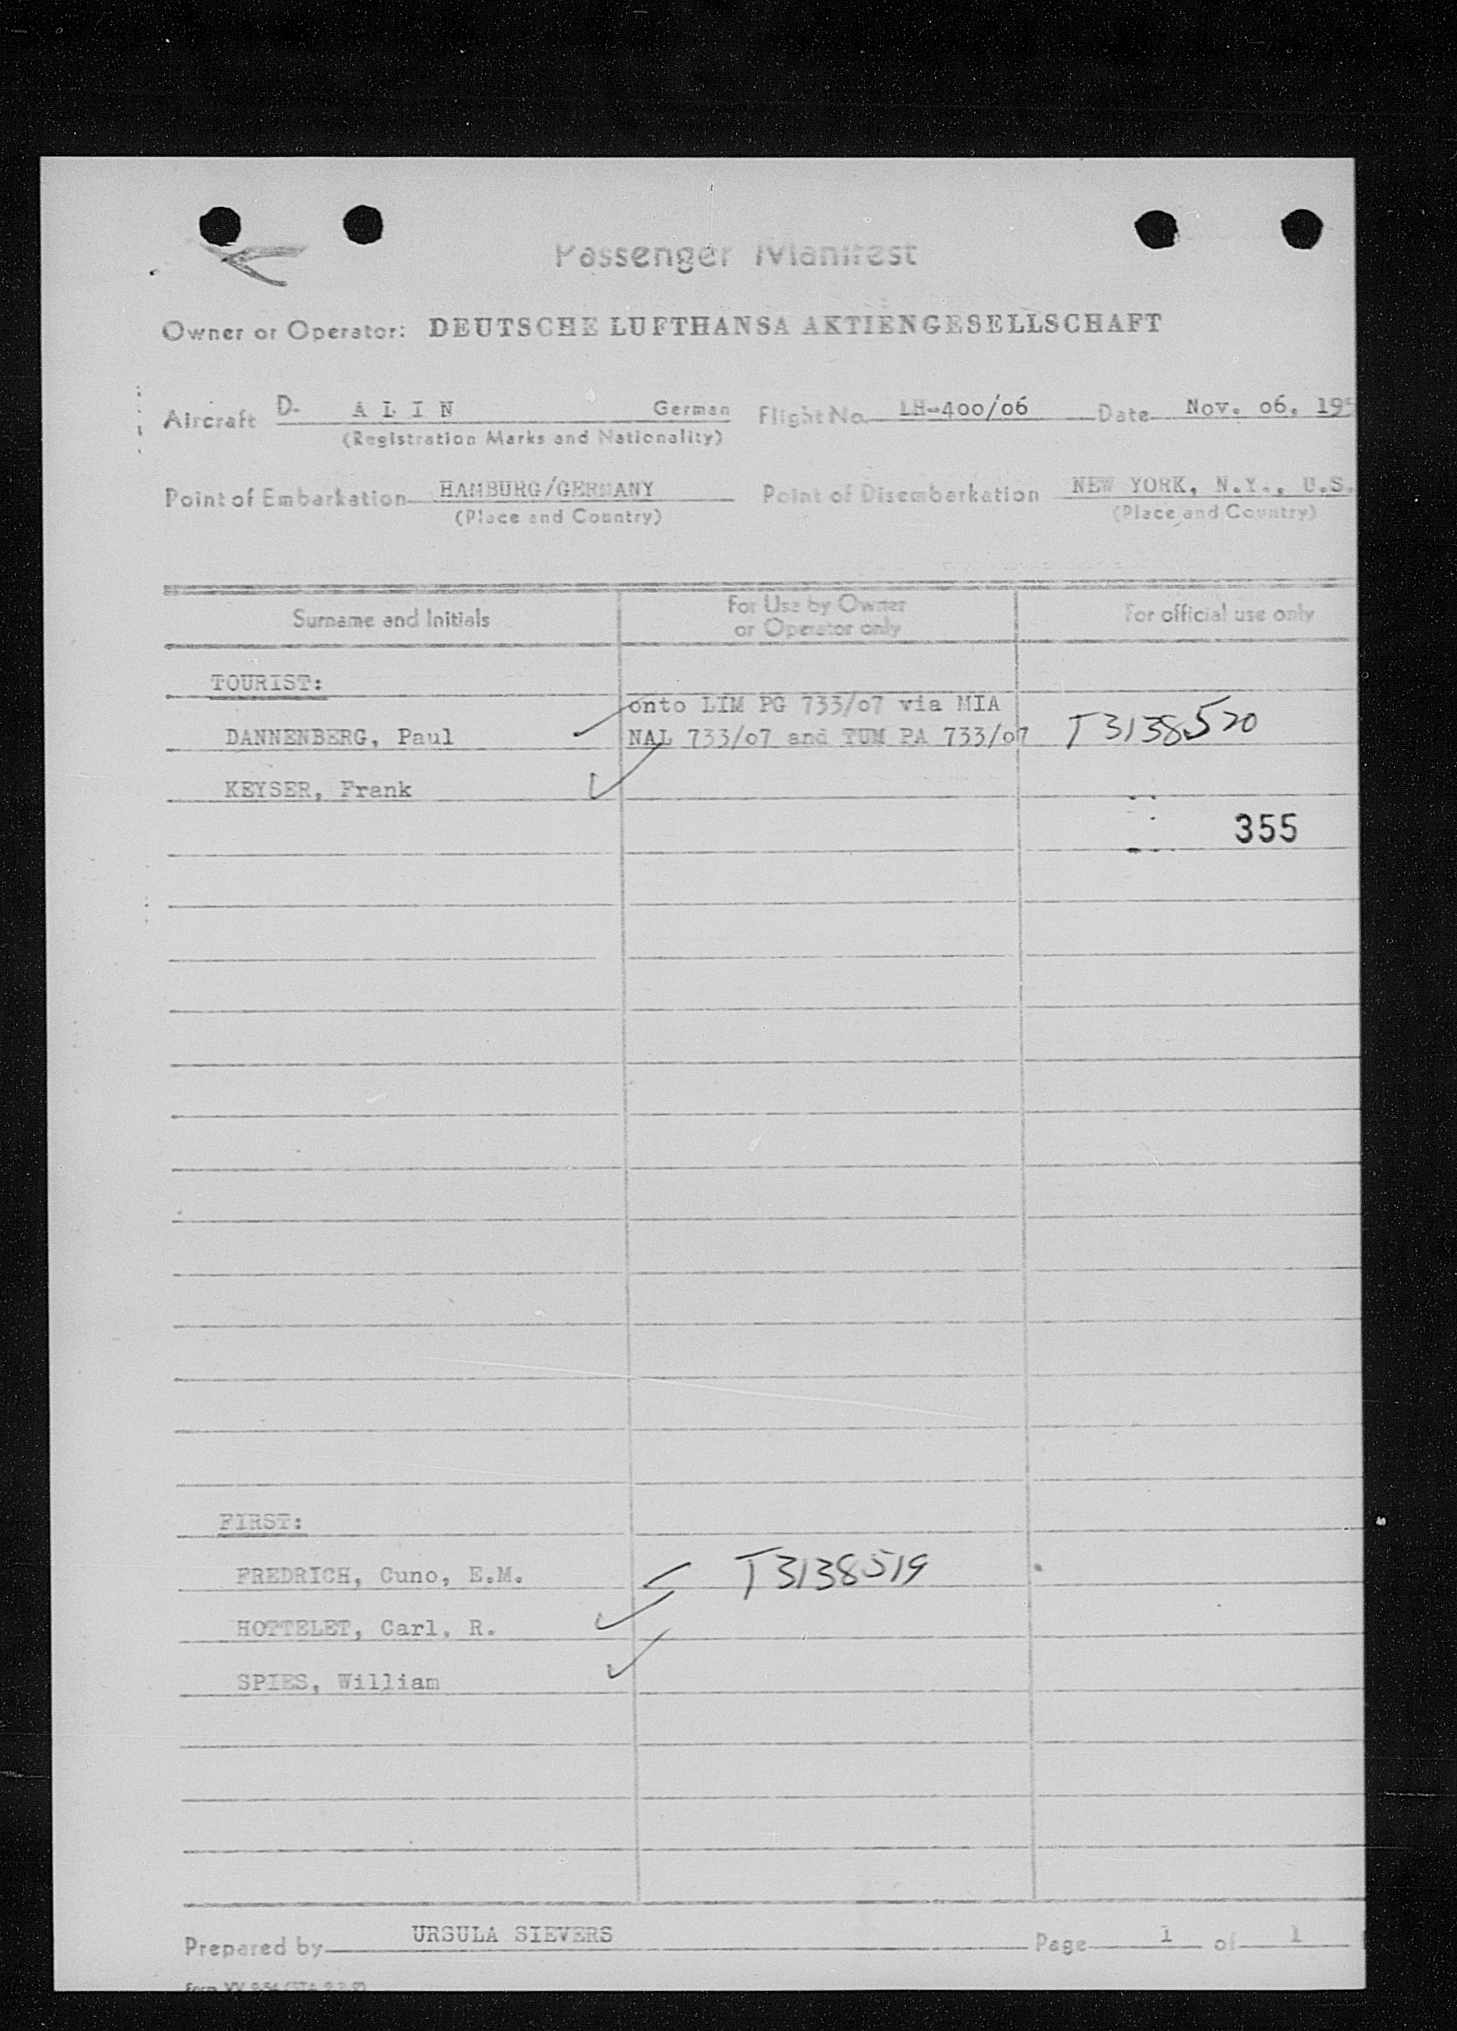 Passenger Manifest
Owner or Operator: DEUTSCHE LUFTHANSA AKTIENGESELLSCHAFT
Aircraft D- A L I N German Flight No. LH-400/06 Date Nov. 06. 19
(Registration Marks and Nationality)
Point of Embarkation HAMBURG/GERMANY Point of Disembarkation NEW YORK, N.Y., U.S.
(Place and Country) (Place and Country)
Surname and Initials For Use by Owner or Operator only For official use only
TOURIST:
onto LIM PG 733/07 via MIA
DANNENBERG, Paul NAL 733/07 and TUM PA 733/07 T3138520
KEYSER, Frank
355
FIRST:
FREDRICH, Cuno, E.M. T3138519
HOTTELET, Carl, R.
SPIES, William
Prepared by URSULA SIEVERS Page 1 of 1